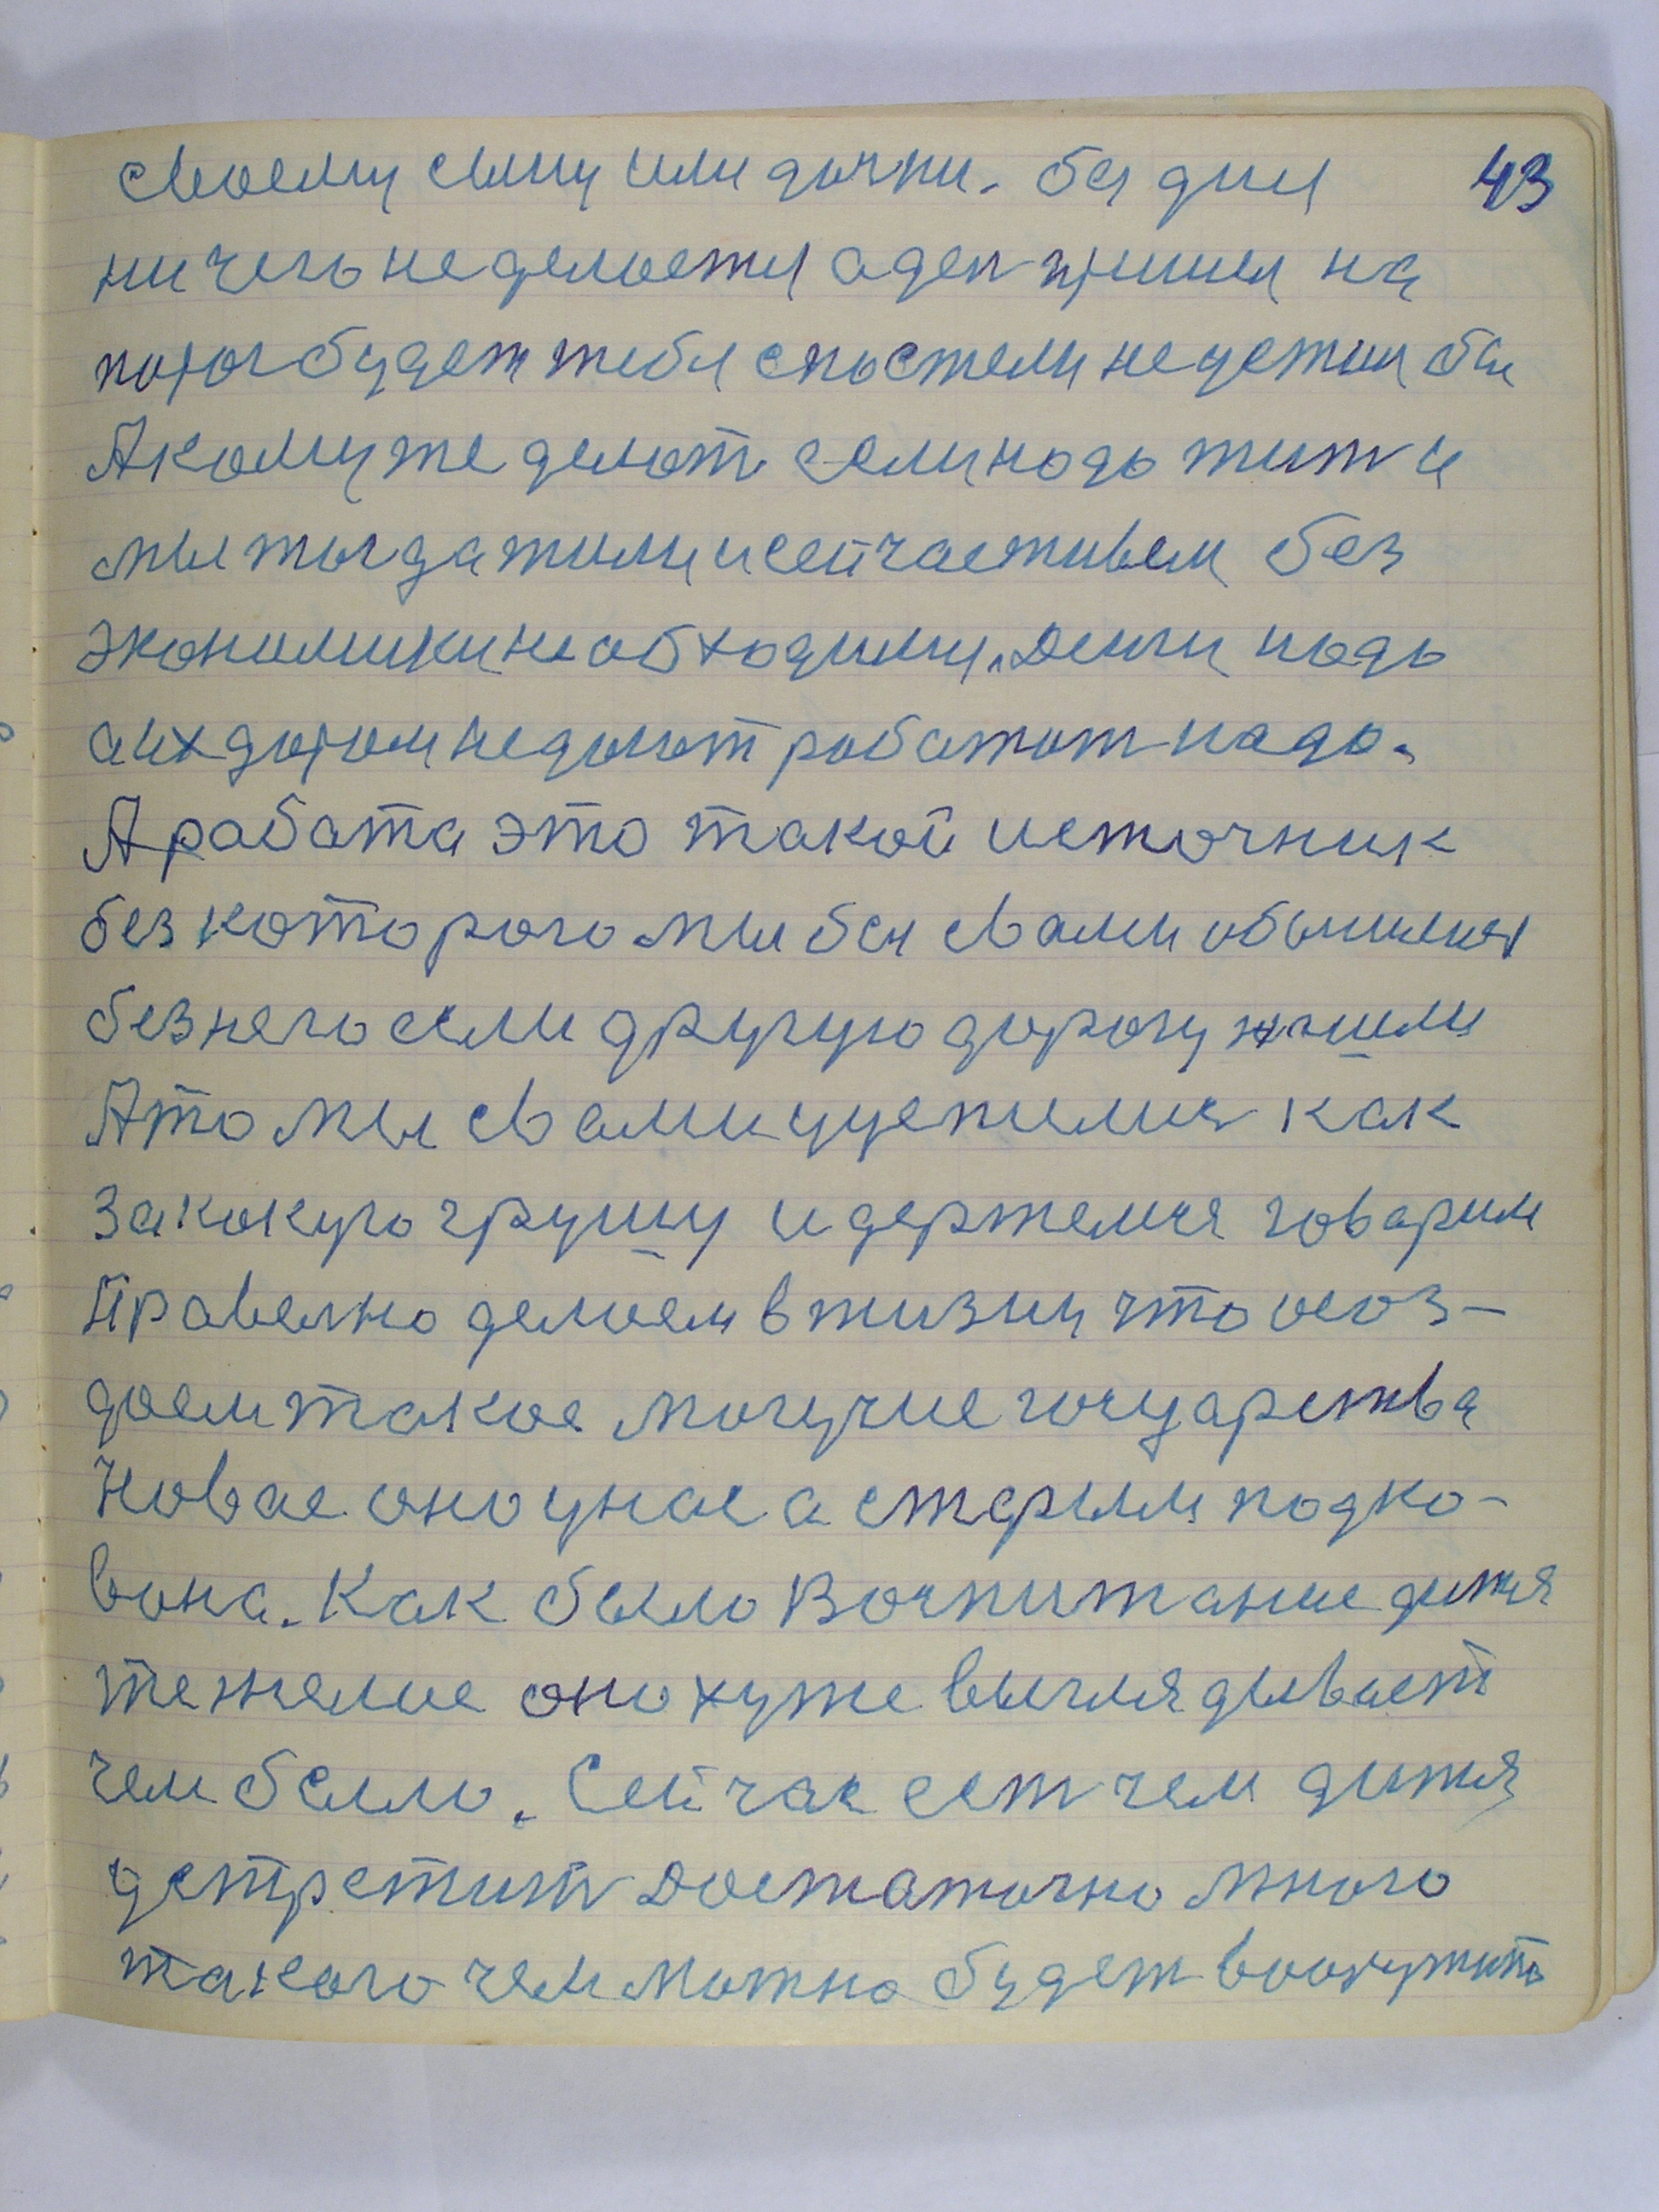 своему сыну или дочки. бя дня 43
ни чего не делается а ден пришел на
порог будет тебя спостели не детки бы
А кому же делат если надо жит и
мы тогда жили и сейчас живем без
экономики необходиму. Денги надо
а их даром недают работат надо.
А работа это такой источник
без которого мы бы свами обышлися
без него если другую дорогу нашли
А то мы свами уцепилися как
за какую грушу и держемся говарим
Правелно делаем в жизни что осоз-
даем такое могучие государства
Новае оно унас а старым подко-
вона. Как было Воспитание дитя
тежелое оно хуже выглядывает
чем было. Сейчас ест чем дитя
устретит Достаточно много
такого чем можно будет вооружить